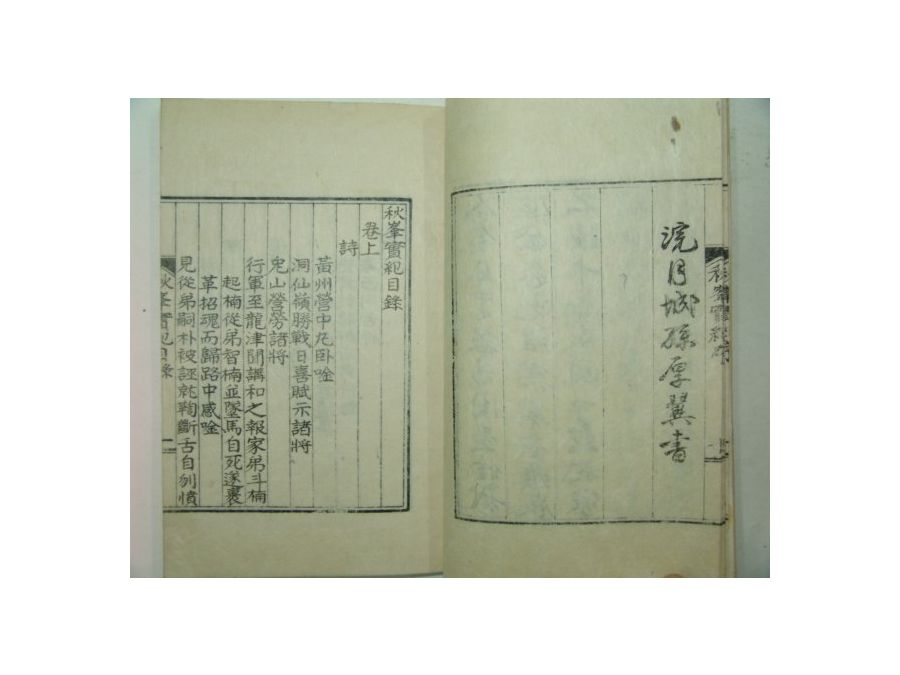 月城孫厚翼書
秋峯實紀目錄
卷上
詩
黃州營中夗臥唫
洞仙嶺勝戰日喜賦示諸將
兎山營勞諸將
行軍至龍津聞講和之報家弟斗楠
起楠從弟智楠並墜馬自死遂裹
革招魂而歸路中感唫
見從弟嗣朴被誣就鞫斷舌自刎憤
秋峯實紀目錄
一